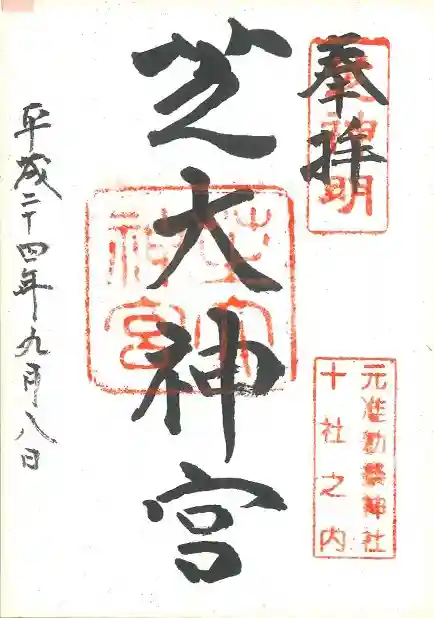 奉拝
芝神明
元准勅祭神社
十社之内
芝大神宮
芝大
神宮
平成二十四年九月八日